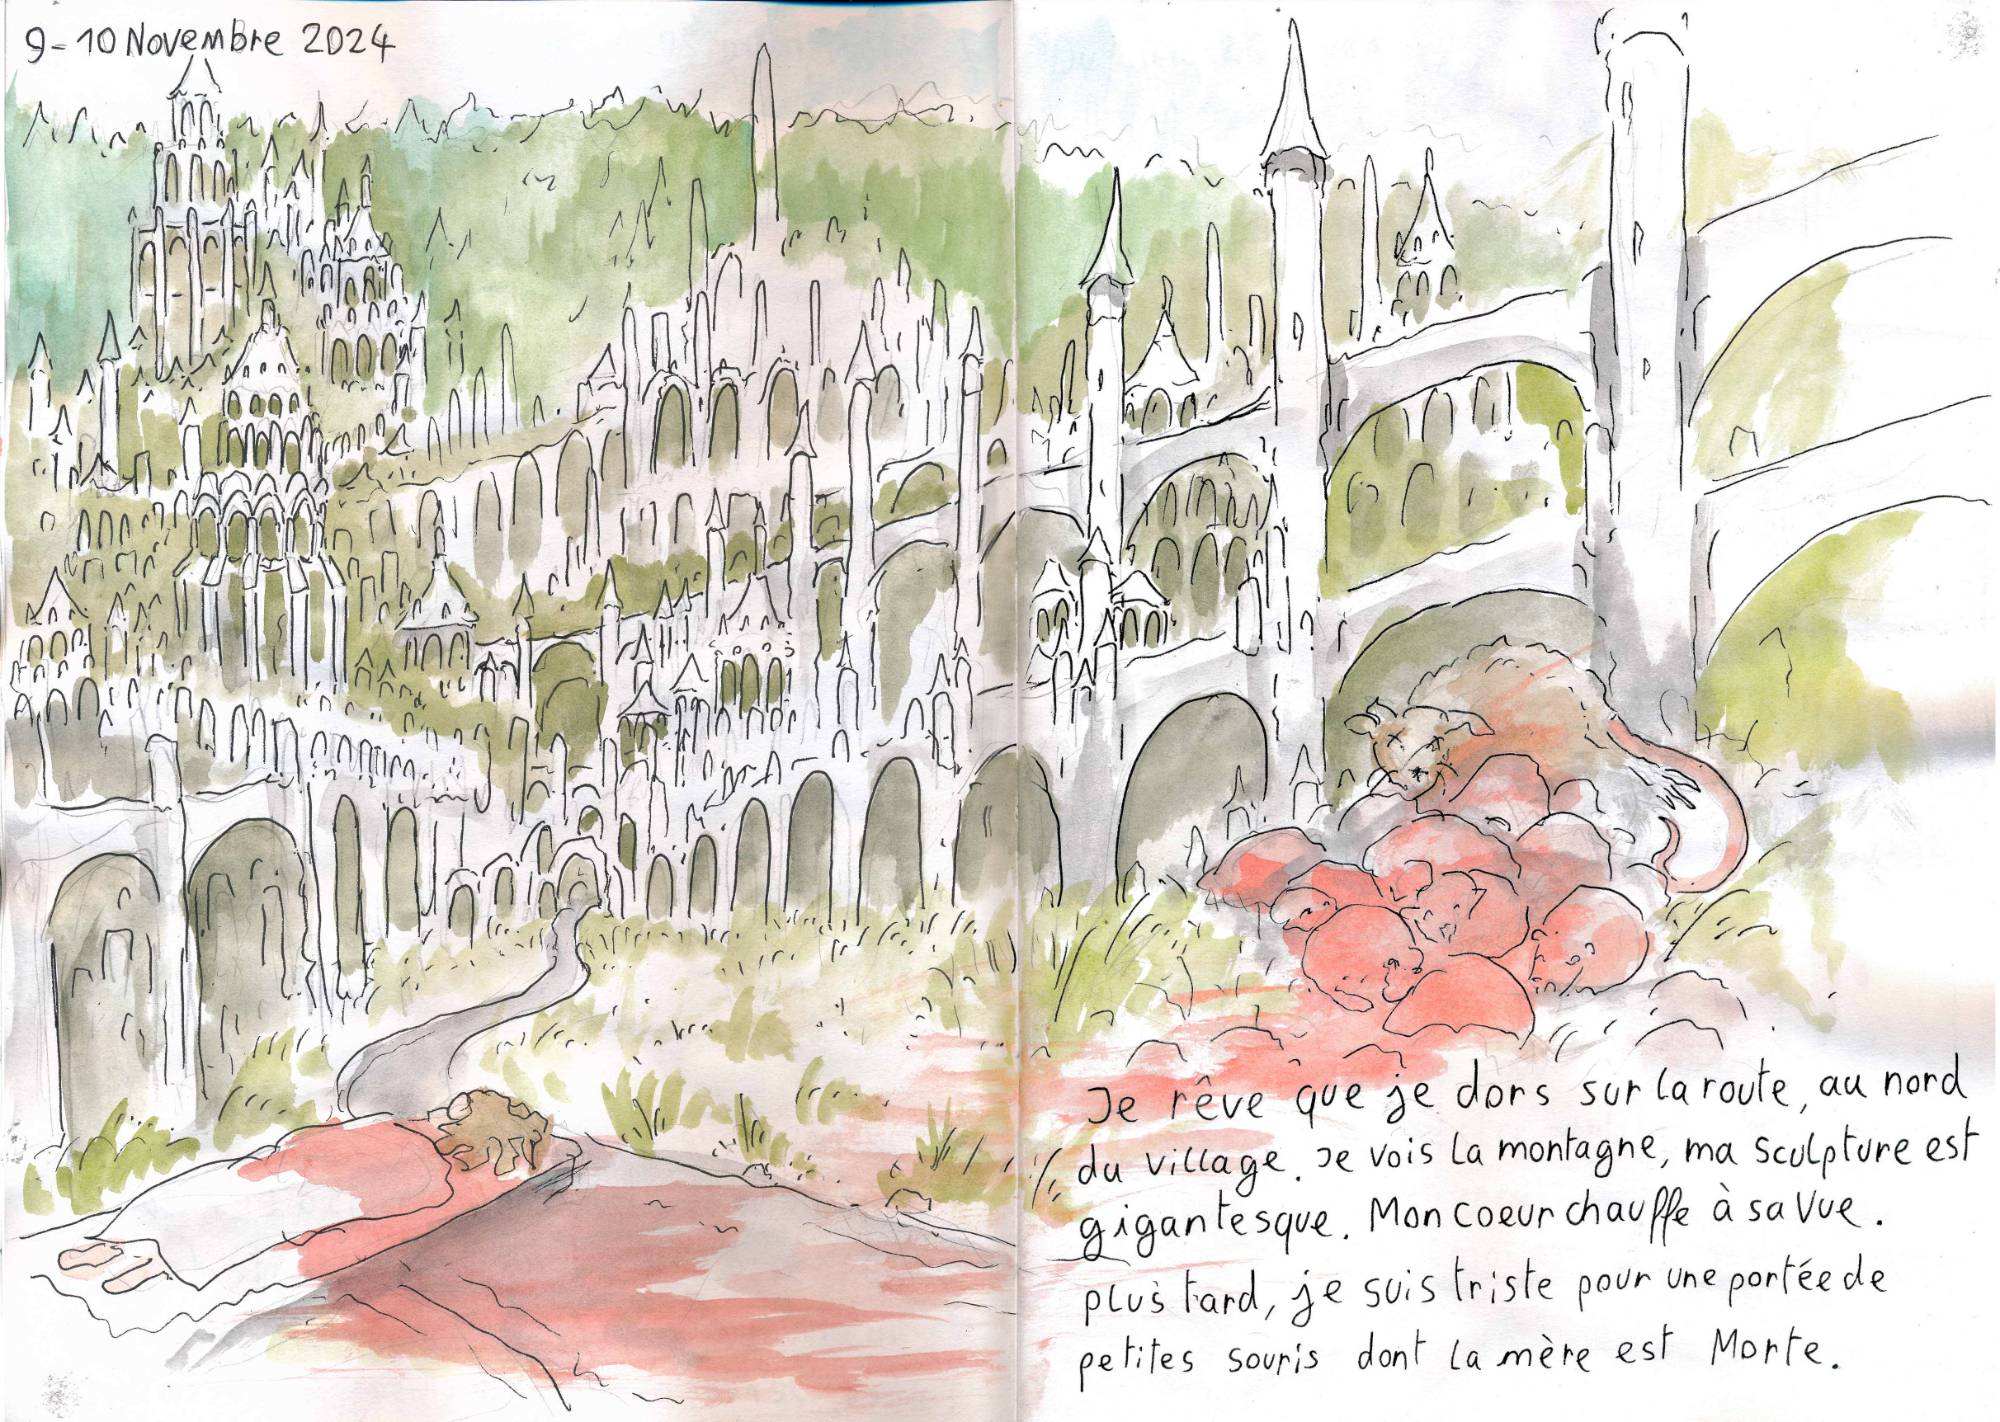 9-10 Novembre 2024
Je rêve que je dors sur la route, au nord
du village. Je vois la montagne, ma sculpture est
gigantesque. Mon coeur chauffe à sa vue.
plus tard, je suis triste pour une portée de
petites souris dont la mère est Morte.